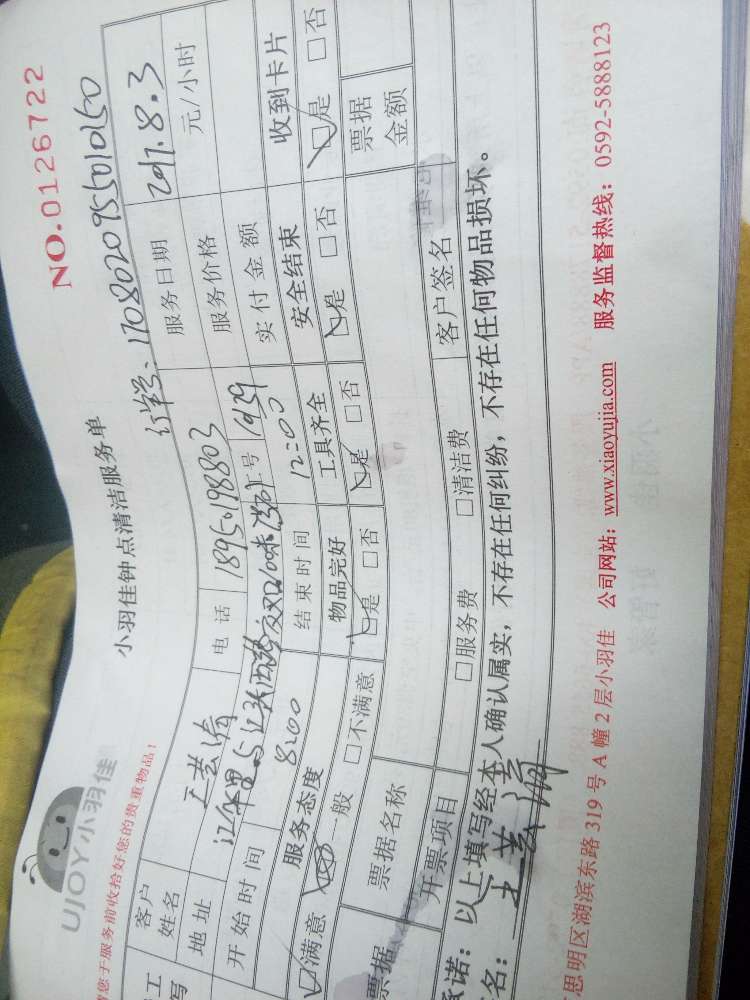 UJOY小羽佳
小羽佳钟点清洁服务单
NO.0126722
您于服务前收拾好您的贵重物品！
170802095501050
客户姓名 电话 18950198803 服务日期 2017.8.3
地址 卡号 1939 服务价格 元/小时
开始时间 8:00 结束时间 12:00 实付金额
服务态度 物品完好 工具齐全 安全结束 收到卡片
☑满意 般 □不满意 ☑是 □否 ☑是 □否 ☑是 □否 ☑是 □否
票据 票据名称 票据金额
开票项目 □服务费 □清洁费 客户签名
承诺：以上填写经本人确认属实，不存在任何纠纷，不存在任何物品损坏。
名：
思明区湖滨东路 319 号 A 幢 2 层小羽佳 公司网站：www.xiaoyujia.com 服务监督热线：0592-5888123